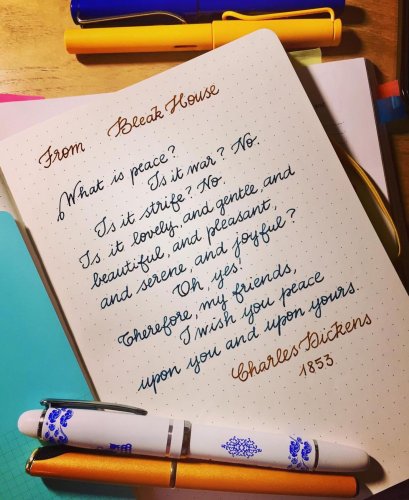 From Bleak House
What is peace?
Is it war? No.
Is it strife? No.
Is it lovely, and gentle, and
beautiful, and pleasant,
and serene, and joyful?
Oh, yes!
Therefore, my friends,
I wish you peace
upon you and upon yours.
Charles Dickens
1853